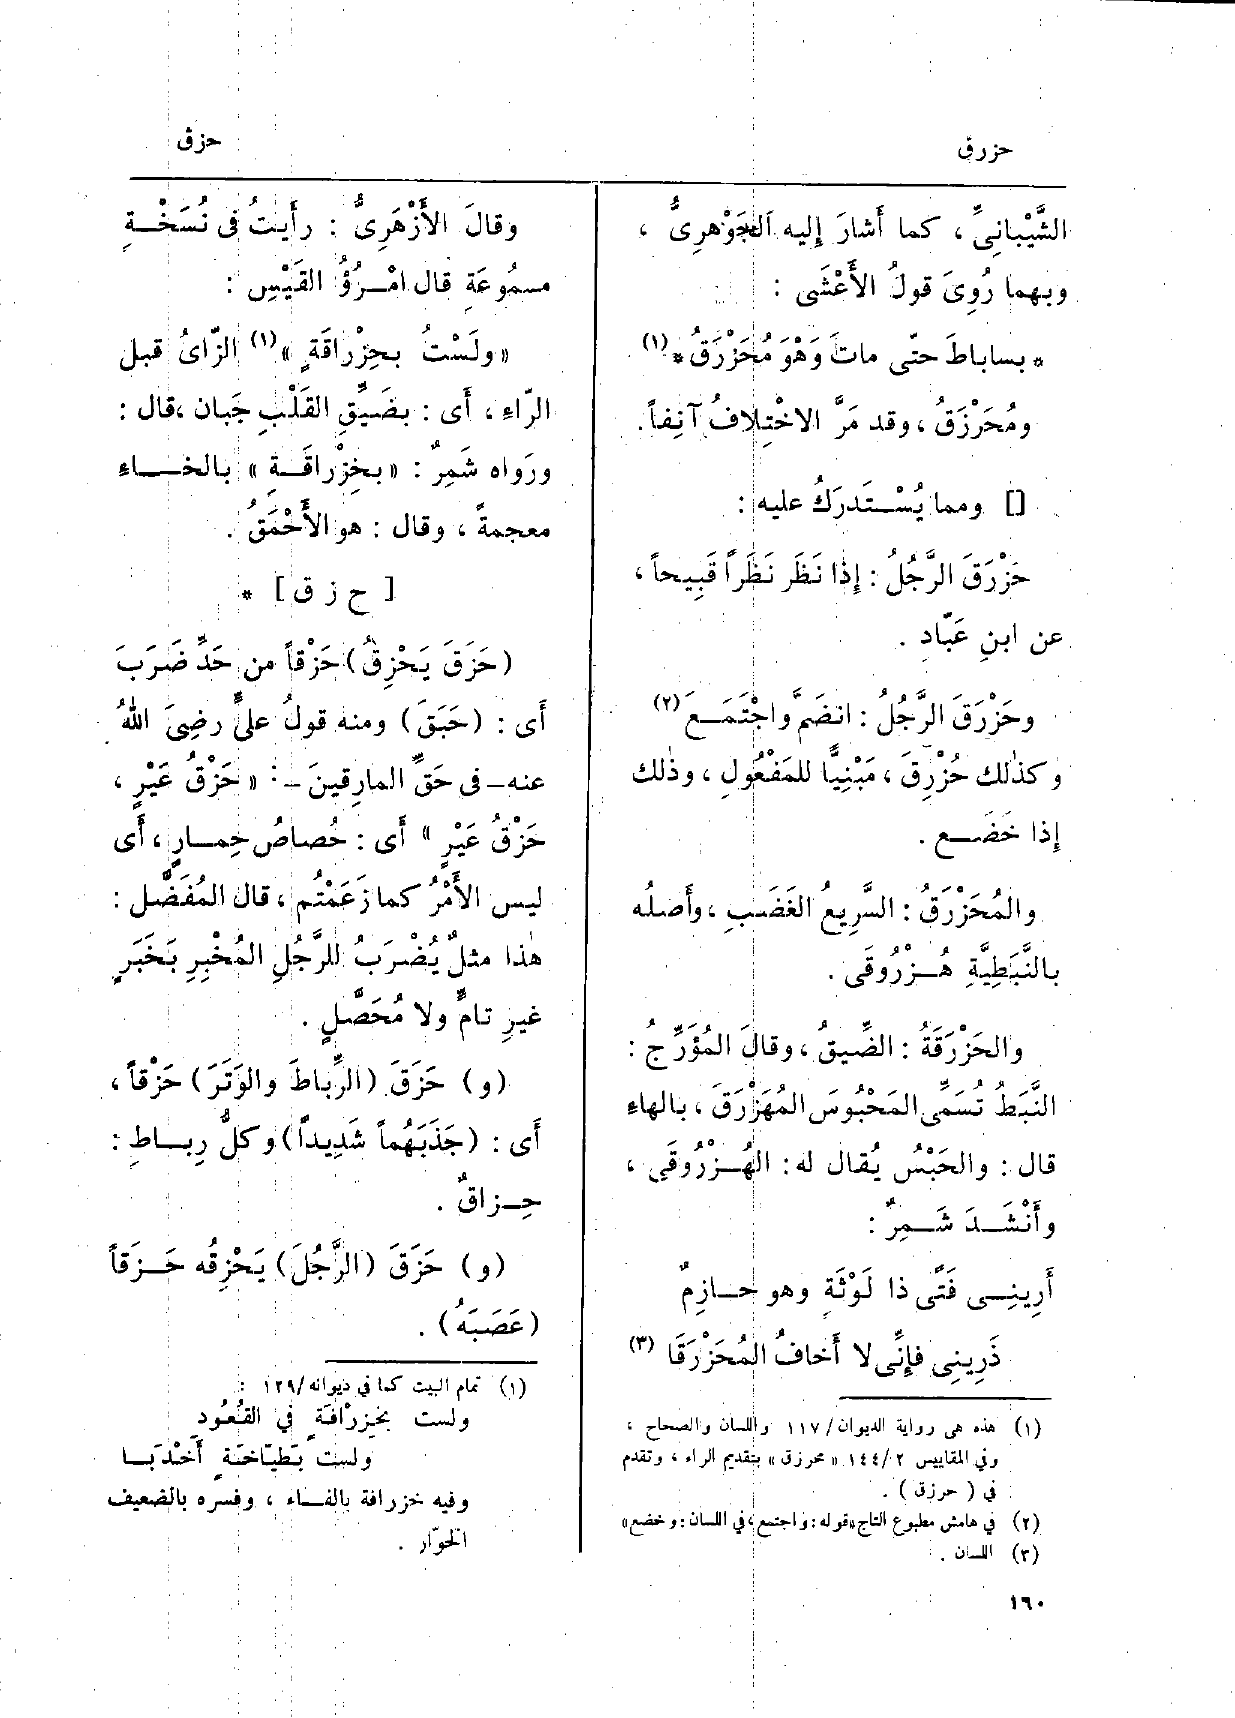 حزرق
حزق
الشَّيْبانِيِّ ، كما أَشارَ إِليه الجَوْهرِىُّ ،
وبهما رُوِىَ قولُ الأَعْشَى :
* بساباطَ حتّى ماتَ وَهْوَ مُحَزْرَقُ * (١)
ومُحَرْزَقُ ، وقد مَرَّ الاخْتِلافُ آنِفاً.
[] ومما يُسْـتَدرَكُ عليه :
حَزْرَقَ الرَّجُلُ : إِذا نَظَر نَظَراً قَبِيحاً ،
عن ابنِ عَبّادٍ .
وحَزْرَقَ الرَّجُلُ : انضَمَّ واجْتَمَـع (٢)
وكذٰلك حُزْرِقَ ، مَبْنِيًّا للمَفْعُولِ ، وذٰلك
إِذا خَضَـع .
والمُحَزْرَقُ : السَّرِيعُ الغَضَبِ ، وأَصلُه
بالنَّبَطِيَّةِ هُـزْرُوقَى .
والحَزْرَقَةُ : الضِّيقُ ، وقالَ المُؤَرِّجُ :
النَّبَطُ تُسَمِّى المَحْبُوسَ المُهَزْرَقَ ، بالهاءِ
قال : والحَبْسُ يُقال له : الهُـزْرُوقَى ،
وأَنْشَـدَ شَـمِرٌ :
أَرِينِـى فَتًى ذا لَوْثَةٍ وهو حـازِمٌ
ذَرِينِى فإِنِّى لا أَخافُ المُحَزْرَقَا (٣)
(١) هذه هى رواية الديوان/ ١١٧ واللسان والصحاح ،
وفي المقاييس ٢/ ١٤٤ « محرزق » بتقديم الراء ، وتقدم
في ( حرزق ) .
(٢) في هامش مطبوع التاج «قوله : واجتمع ، في اللسان : وخضع»
(٣) اللسان .
١٦٠
وقالَ الأَزْهَرِىُّ : رأَيتُ فى نُسَخْـةٍ
مسمُوعَةٍ قال امْـرُؤُ القَيْسِ :
« ولَسْتُ بحِزْراقَةٍ » (١) الزّاىُ قبل
الرّاءِ ، أَى : بضَيِّقِ القَلْبِ جَبان ، قال :
ورَواه شَمِرٌ : « بخِزْراقَـةٍ » بالخـاء
معجمةً ، وقال : هو الأَحْمَقُ .
[ ح ز ق ] *
(حَزَقَ يَحْزِقُ) حَزْقاً من حَدِّ ضَرَبَ
أَى : (حَبَقَ) ومنه قولُ علىٍّ رضِىَ اللهُ
عنه – فى حَقِّ المارِقينَ – : « حَزْقُ عَيْرٍ ،
حَزْقُ عَيْرٍ » أَى : حُصاصُ حِمـارٍ ، أَى
ليس الأَمْرُ كما زَعَمْتُم ، قال المُفَضَّل :
هٰذا مثلٌ يُضْرَبُ للرَّجُلِ المُخْبِرِ بَخَبَرٍ
غيرِ تامٍّ ولا مُحَصَّلٍ .
(و) حَزَقَ (الرِّباطَ والوَتَرَ) حَزْقاً ،
أَى : (جَذَبَهُماَ شَدِيداً) وكلُّ رِبـاطٍ :
حِـزاقٌ .
(و) حَزَقَ (الرَّجُلَ) يَحْزِقُه حَـزْقاً
(عَصَبَهُ) .
(١) تمام البيت كما في ديوانه/ ١٢٩ :
ولست بخِزْرافَةٍ في القُعُودِ
ولست بطَيّاخَةٍ أَخْدَبَـا
وفيه خزرافة بالفـاء ، وفسره بالضعيف
الخوّار .